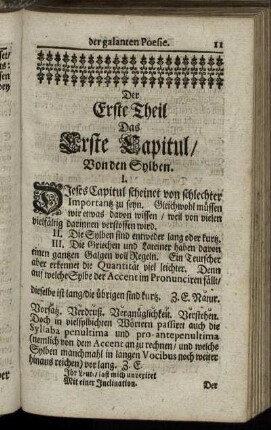 der galanten Poesie. 11
Der
Erste Theil
Das
Erste Capitul/
Von den Sylben.
I.
DIeses Capitul scheinet von schlechter
Importantz zu seyn. Gleichwohl müssen
wir etwas davon wissen / weil von vielen
vielfältig darinnen verstossen wird.
II. Die Sylben sind entweder lang oder kurtz.
III. Die Griechen und Lateiner haben davon
einen gantzen Galgen voll Regeln. Ein Teutscher
aber erkennet die Quantität viel leichter. Denn
auf welche Sylbe der Accent im Pronunciren fällt/
dieselbe ist lang/die übrigen sind kurtz. Z. E. Natur.
Vorsatz. Verdruß. Vergnüglichkeit. Verstehen.
Doch in vielsylbichten Wörtern passiret auch die
Syllaba penultima und pro-antepenultima
(nemlich von dem Accent an zu rechnen / und welche
Sylben manchmahl in langen Vocibus noch weiter
hinaus reichen) vor lang. Z. E.
Mit einer Inclination.
Der